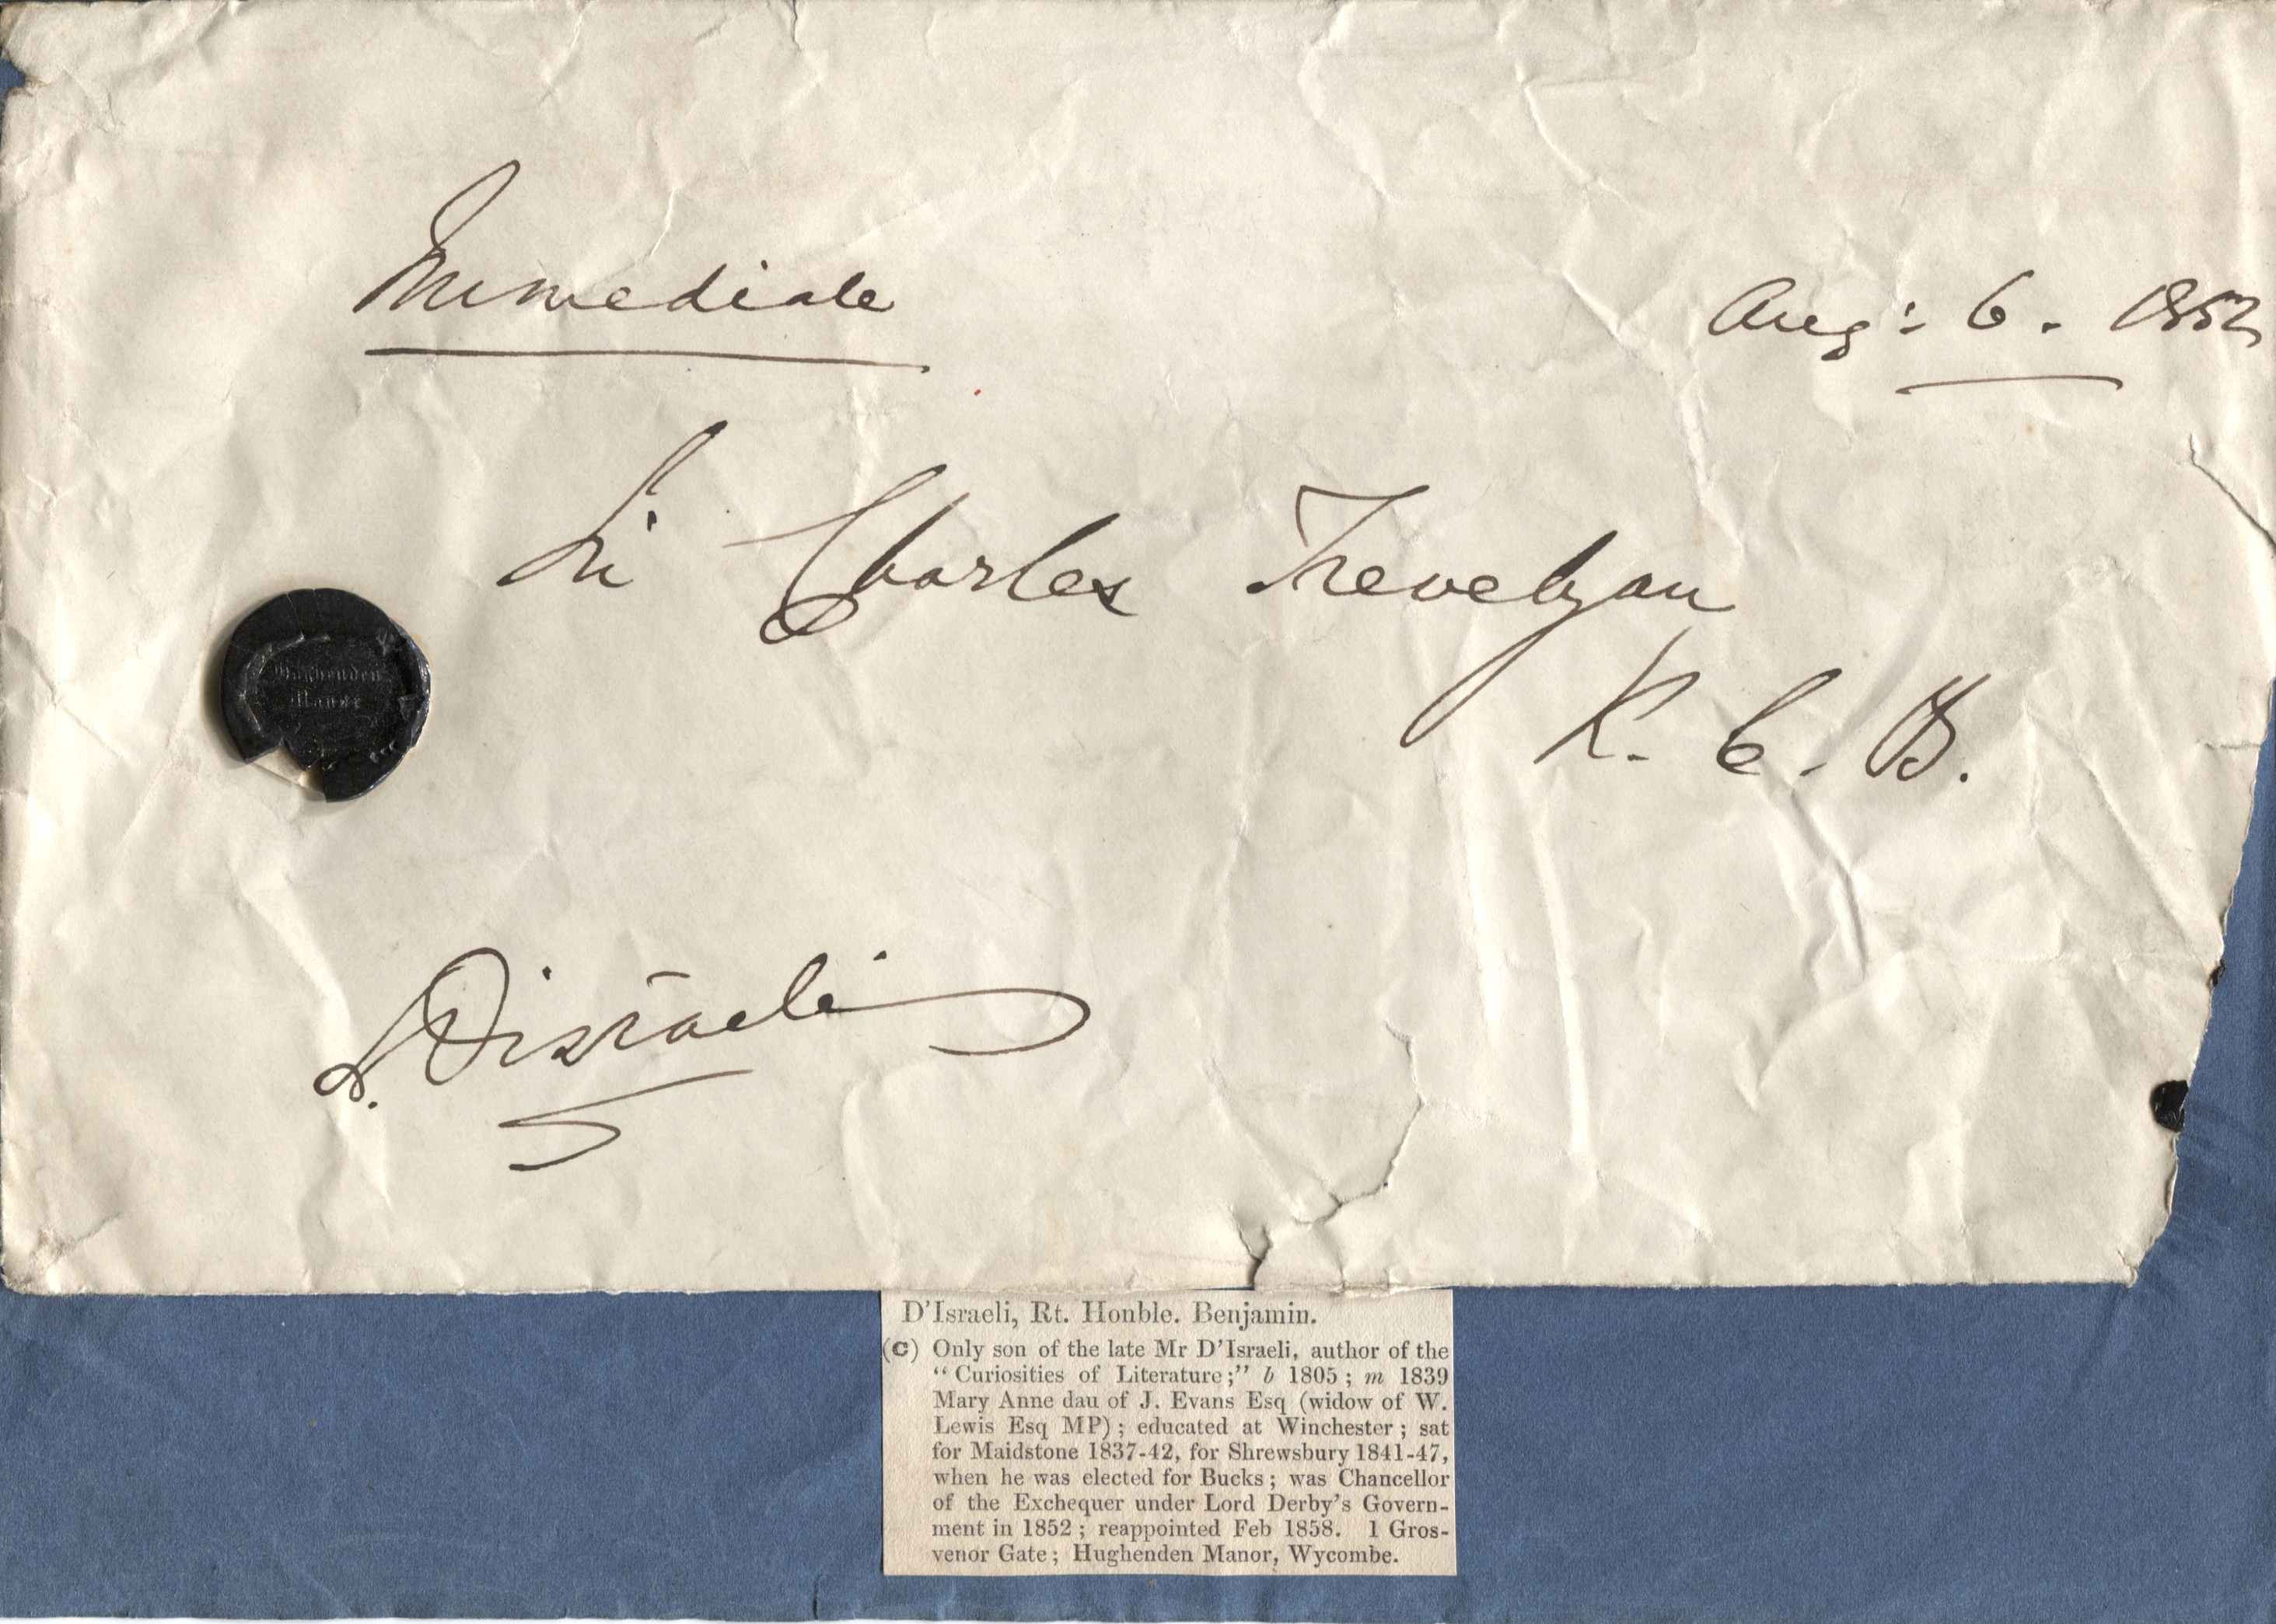 Immediate
Aug: 6. 1852
Sir Charles Trevelyan
K. C. B.
Hughenden
Manor
B. Disraeli
D'Israeli, Rt. Honble. Benjamin.
(C) Only son of the late Mr D'Israeli, author of the
“Curiosities of Literature;” b 1805; m 1839
Mary Anne dau of J. Evans Esq (widow of W.
Lewis Esq MP); educated at Winchester; sat
for Maidstone 1837-42, for Shrewsbury 1841-47,
when he was elected for Bucks; was Chancellor
of the Exchequer under Lord Derby's Govern-
ment in 1852; reappointed Feb 1858. 1 Gros-
venor Gate; Hughenden Manor, Wycombe.